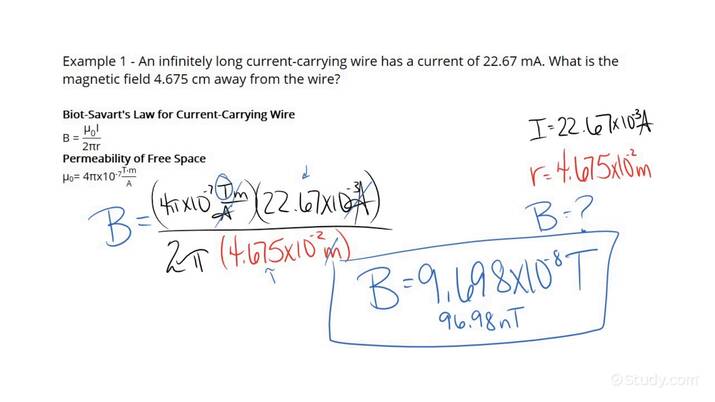 Example 1 - An infinitely long current-carrying wire has a current of 22.67 mA. What is the
magnetic field 4.675 cm away from the wire?
Biot-Savart's Law for Current-Carrying Wire
B = μ₀I/2πr
Permeability of Free Space
μ₀= 4πx10⁻⁷ T·m/A
I=22.67x10⁻³A
r=4.675x10⁻²m
B=?
B= (4πx10⁻⁷ Tm/A)(22.67x10⁻³A)
2π (4.675x10⁻²m)
B=9.698x10⁻⁸T
96.98nT
©Study.com